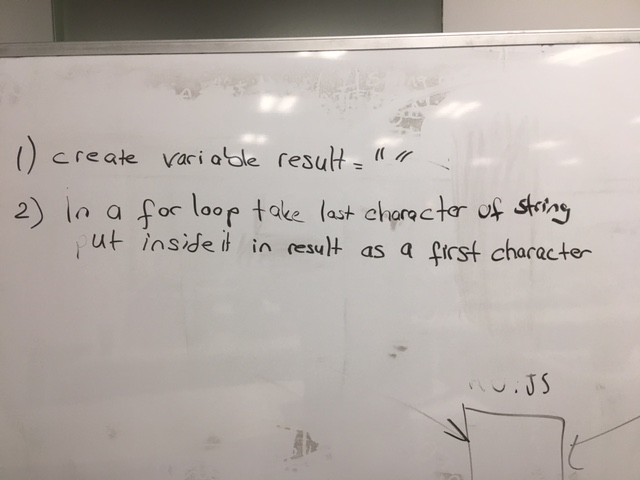 1) create variable result = " "
2) In a for loop take last character of string
put inside it in result as a first character
.JS